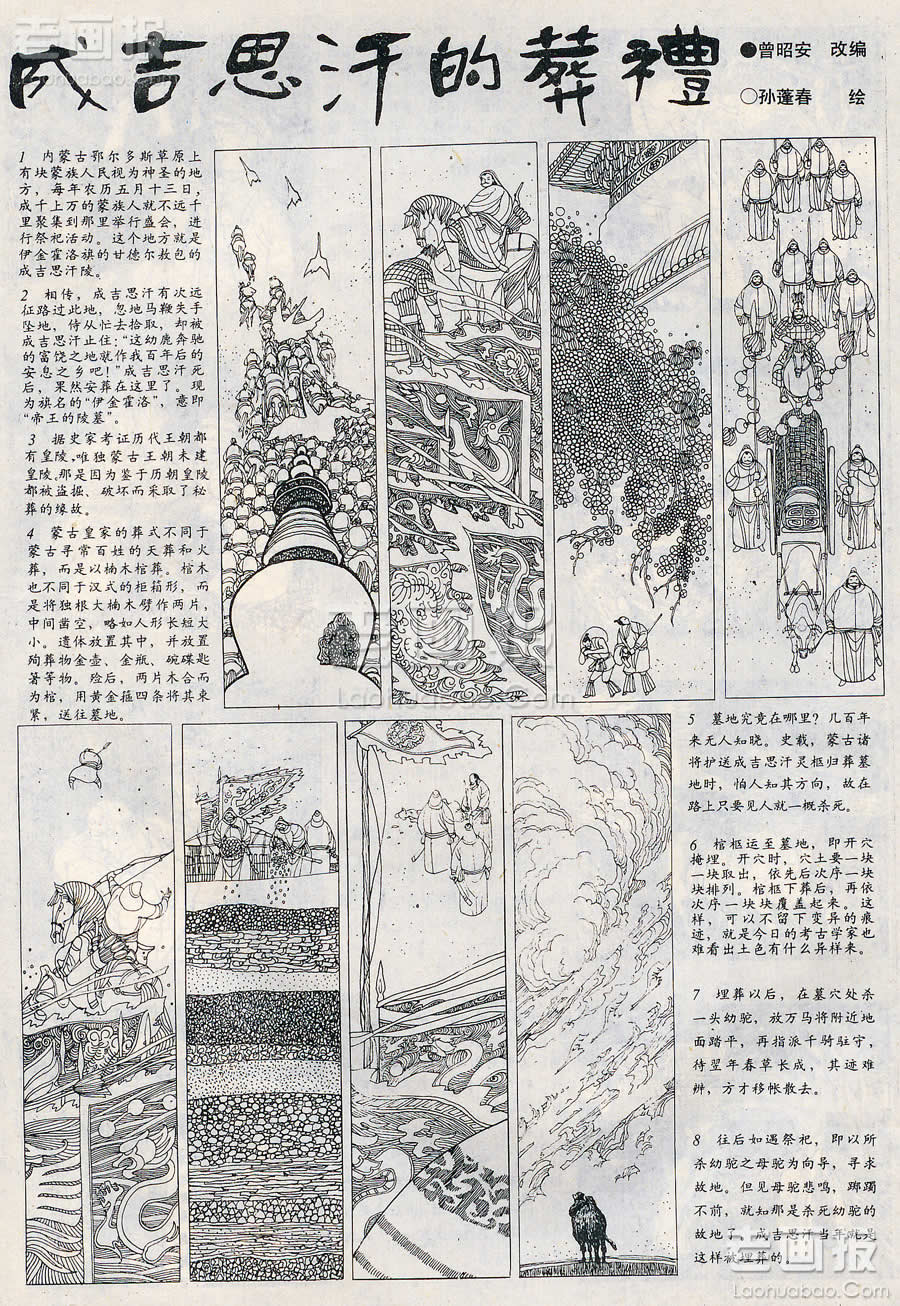 成吉思汗的葬禮
●曾昭安 改编
○孙蓬春 绘
1 内蒙古鄂尔多斯草原上
有块蒙族人民视为神圣的地
方，每年农历五月十三日，
成千上万的蒙族人就不远千
里聚集到那里举行盛会，进
行祭祀活动。这个地方就是
伊金霍洛旗的甘德尔敖包的
成吉思汗陵。
2 相传，成吉思汗有次远
征路过此地，忽地马鞭失手
坠地，侍从忙去拾取，却被
成吉思汗止住：“这幼鹿奔驰
的富饶之地就作我百年后的
安息之乡吧！”成吉思汗死
后，果然安葬在这里了。现
为旗名的“伊金霍洛”，意即
“帝王的陵墓”。
3 据史家考证历代王朝都
有皇陵，唯独蒙古王朝未建
皇陵，那是因为鉴于历朝皇陵
都被盗掘、破坏而采取了秘
葬的缘故。
4 蒙古皇家的葬式不同于
蒙古寻常百姓的天葬和火
葬，而是以楠木棺葬。棺木
也不同于汉式的柜箱形，而
是将独根大楠木劈作两片，
中间凿空，略如人形长短大
小。遗体放置其中，并放置
殉葬物金壶、金瓶、碗碟匙
箸等物。殓后，两片木合而
为棺，用黄金箍四条将其束
紧，送往墓地。
5 墓地究竟在哪里？几百年
来无人知晓。史载，蒙古诸
将护送成吉思汗灵柩归葬墓
地时，怕人知其方向，故在
路上只要见人就一概杀死。
6 棺柩运至墓地，即开穴
掩埋。开穴时，穴土要一块
一块取出，依先后次序一块
块排列。棺柩下葬后，再依
次序一块块覆盖起来。这
样，可以不留下变异的痕
迹，就是今日的考古学家也
难看出土色有什么异样来。
7 埋葬以后，在墓穴处杀
一头幼驼，放万马将附近地
面踏平，再指派千骑驻守，
待翌年春草长成，其迹难
辨，方才移帐散去。
8 往后如遇祭祀，即以所
杀幼驼之母驼为向导，寻求
故地。但见母驼悲鸣，踯躅
不前，就知那是杀死幼驼的
故地了。成吉思汗当年就是
这样被埋葬的。
老画报
Laonuabao.Com
老画报
Laonuabao.com
老画报